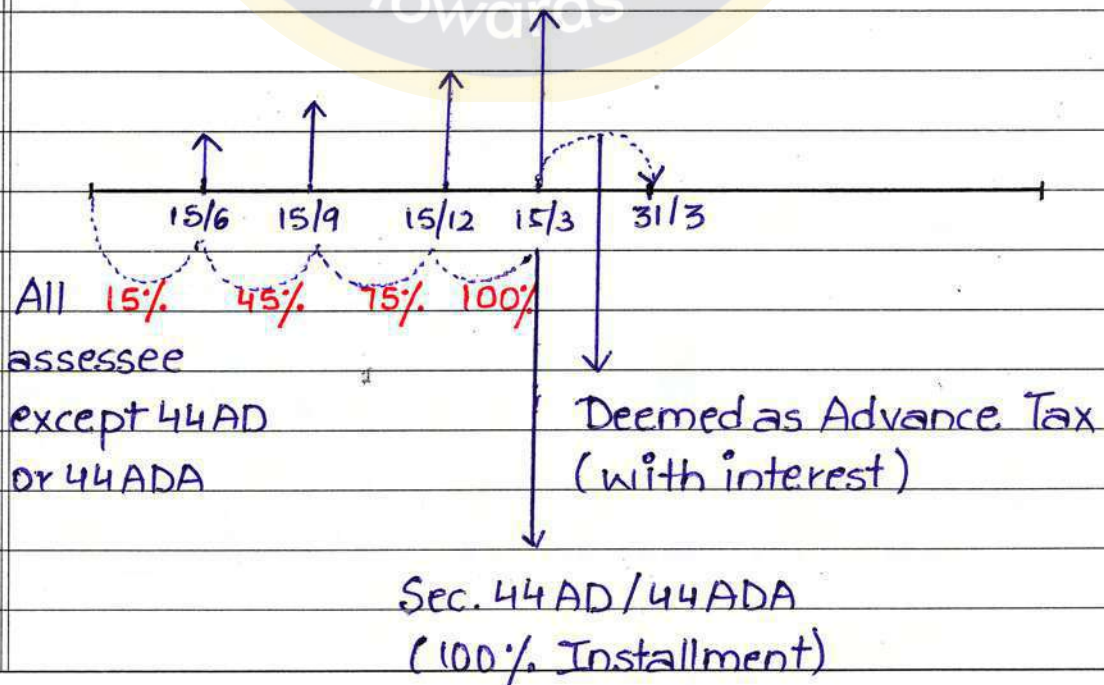 Towards
15/6 15/9 15/12 15/3 31/3
All 15% 45% 75% 100%
assessee
except 44AD
or 44ADA
Deemed as Advance Tax
(with interest)
Sec. 44AD/44ADA
(100% Installment)